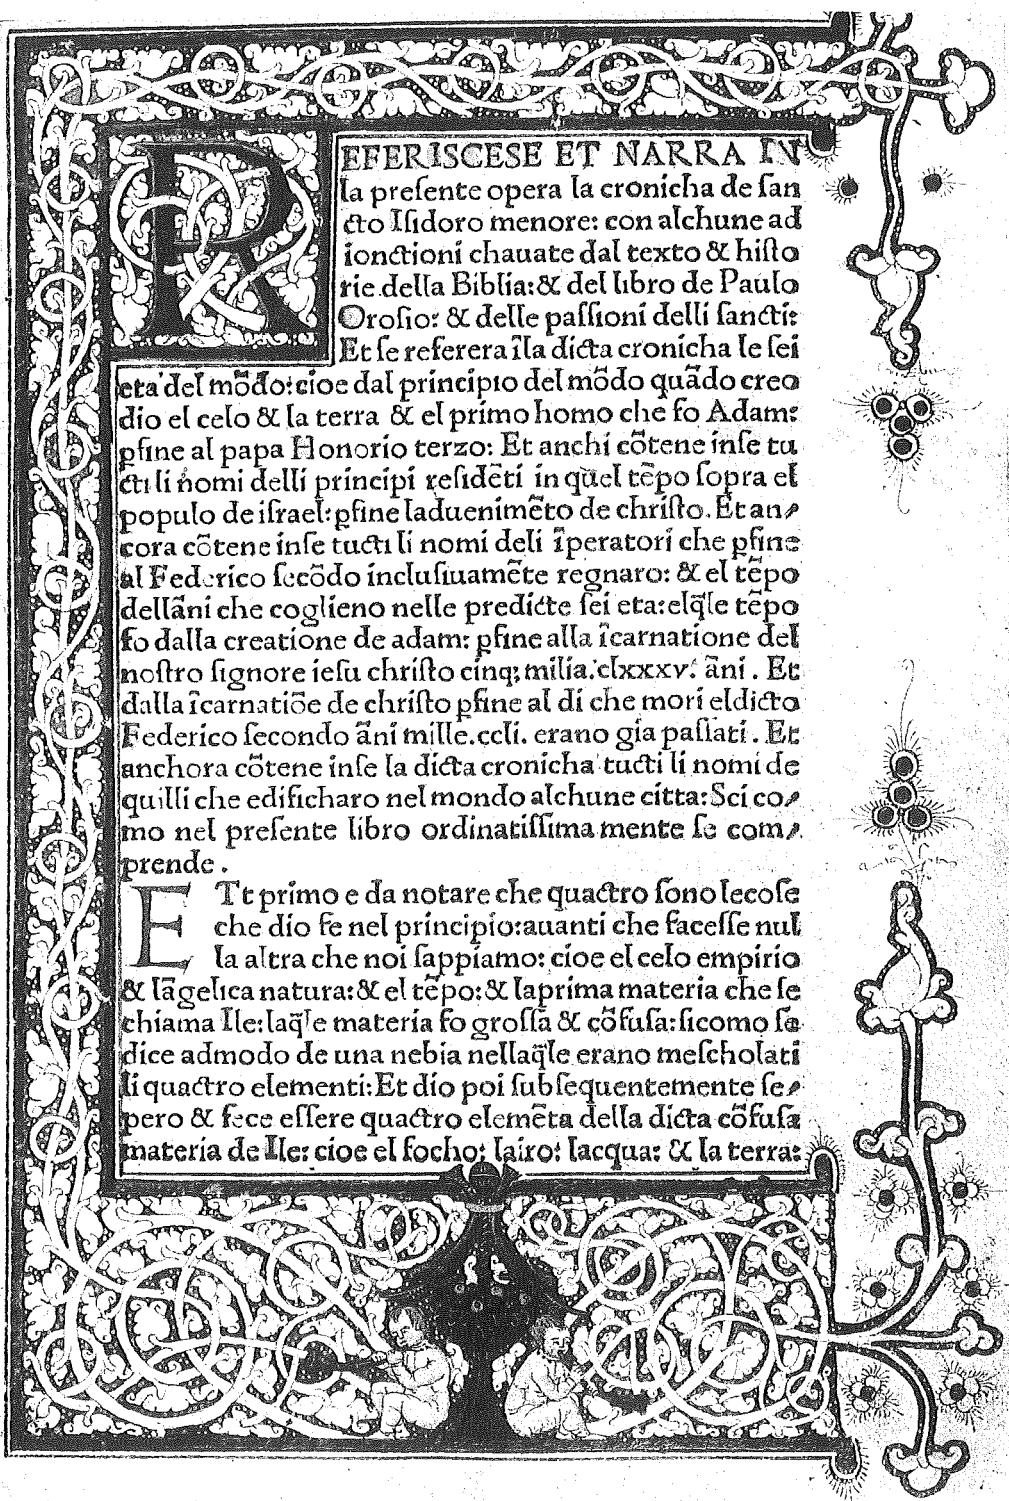 REFERISCESE ET NARRA IN
la preſente opera la cronicha de ſan
cto Iſidoro menore: con alchune ad
ionctioni chauate dal texto & hiſto
rie della Biblia: & del libro de Paulo
Oroſio: & delle paſſioni delli ſancti:
Et ſe referera ĩla dicta cronicha le ſei
eta del mõdo: cioe dal principio del mõdo quãdo creo
dio el celo & la terra & el primo homo che fo Adam:
ꝑfine al papa Honorio terzo: Et anchi cõtene inſe tu
cti li nomi delli principi reſidẽti in quel tẽpo ſopra el
populo de iſrael: ꝑfine laduenimẽto de chriſto. Et an⸗
cora cõtene inſe tucti li nomi deli ĩperatori che ꝑfine
al Federico ſecõdo incluſiuamẽte regnaro: & el tẽpo
dellãni che coglieno nelle predicte ſei eta: elq̃le tẽpo
fo dalla creatione de adam: ꝑfine alla ĩcarnatione del
noſtro ſignore ieſu chriſto cinq; milia. clxxxv. ãni. Et
dalla ĩcarnatiõe de chriſto ꝑfine al di che mori eldicto
Federico ſecondo ãni mille.ccli. erano gia paſſati. Et
anchora cõtene inſe la dicta cronicha tucti li nomi de
quilli che edificharo nel mondo alchune citta: Sci co⸗
mo nel preſente libro ordinatiſſima mente ſe com⸗
prende.
ETt primo e da notare che quactro ſono lecoſe
che dio fe nel principio: auanti che faceſſe nul
la altra che noi ſappiamo: cioe el celo empirio
& lãgelica natura: & el tẽpo: & laprima materia che ſe
chiama Ile: laq̃le materia fo groſſa & cõfuſa: ſicomo ſe
dice admodo de una nebia nellaq̃le erano meſcholati
li quactro elementi: Et dio poi ſubſequentemente ſe⸗
pero & fece eſſere quactro elemẽta della dicta cõfuſa
materia de Ile: cioe el focho: lairo: lacqua: & la terra: